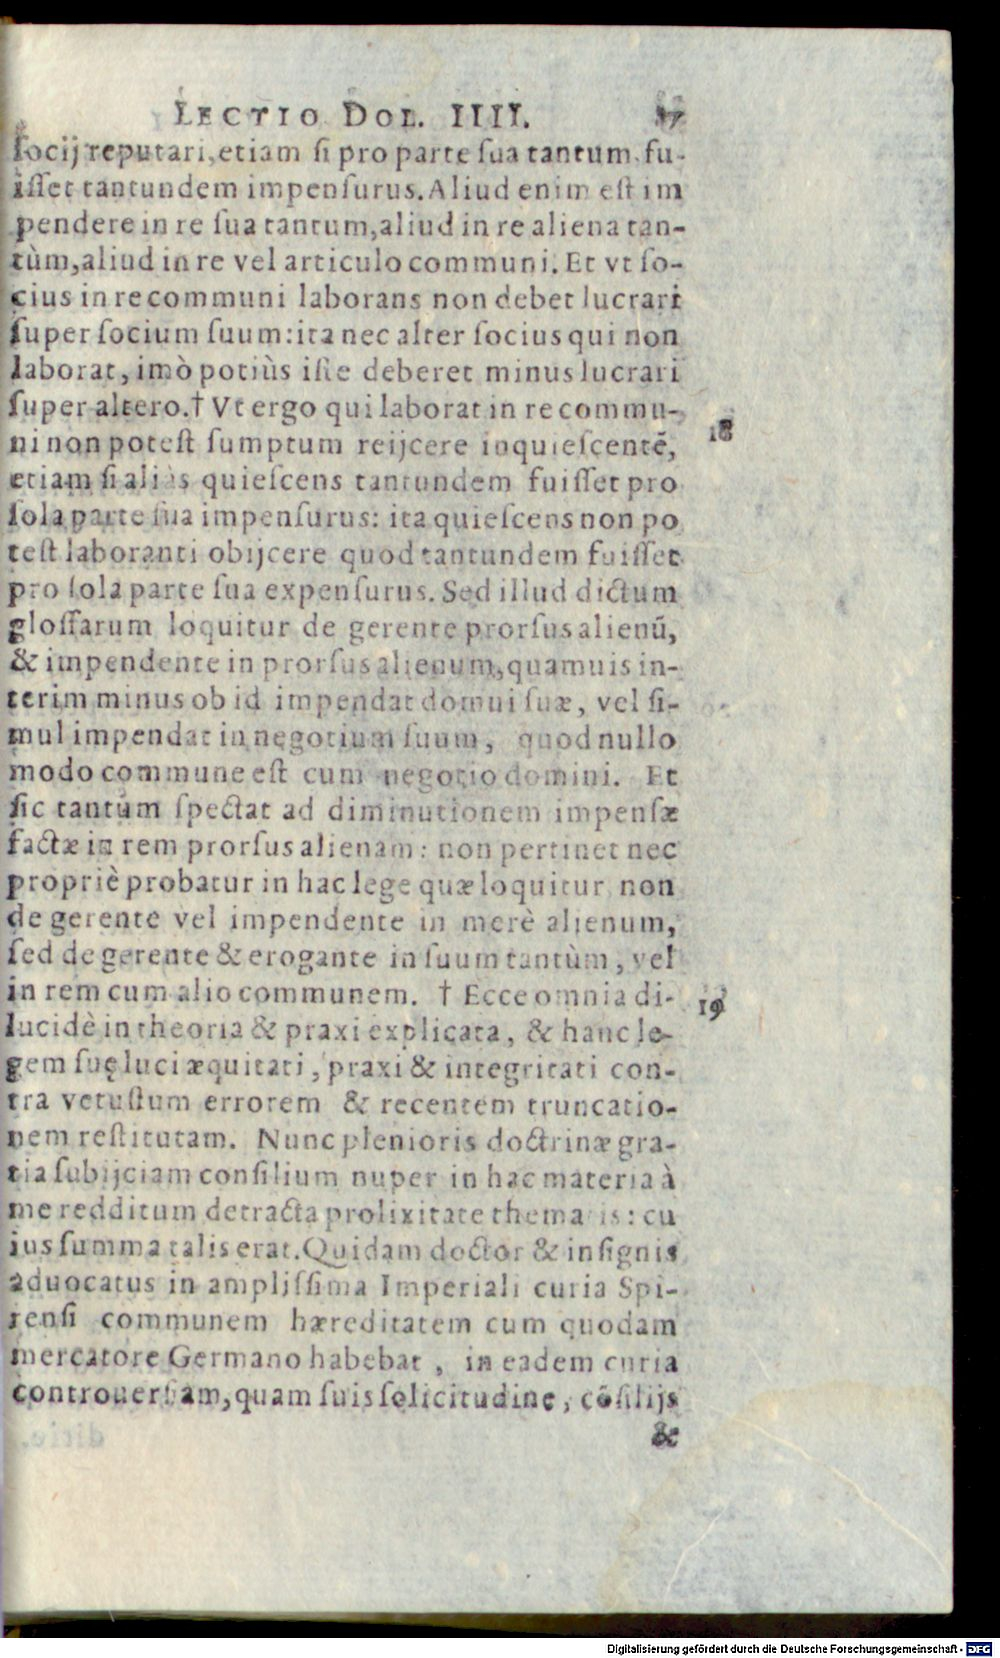 LECTIO DOL. IIII. 17
ſocij reputari, etiam ſi pro parte ſua tantum fu-
iſſet tantundem impenſurus. Aliud enim eſt im
pendere in re ſua tantum, aliud in re aliena tan-
tùm, aliud in re vel articulo communi. Et vt ſo-
cius in re communi laborans non debet lucrari
ſuper ſocium ſuum: ita nec alter ſocius qui non
laborat, imò potiùs iſte deberet minus lucrari
ſuper altero. † Vt ergo qui laborat in re commu-
ni non poteſt ſumptum reijcere in quieſcentē,
18
etiam ſi aliàs quieſcens tantundem fuiſſet pro
ſola parte ſua impenſurus: ita quieſcens non po
teſt laboranti obijcere quod tantundem fuiſſet
pro ſola parte ſua expenſurus. Sed illud dictum
gloſſarum loquitur de gerente prorſus alienū,
& impendente in prorſus alienum, quamuis in-
terim minus ob id impendat domui ſuæ, vel ſi-
mul impendat in negotium ſuum, quod nullo
modo commune eſt cum negotio domini. Et
ſic tantùm ſpectat ad diminutionem impenſæ
factæ in rem prorſus alienam: non pertinet nec
propriè probatur in hac lege quæ loquitur non
de gerente vel impendente in merè alienum,
ſed de gerente & erogante in ſuum tantùm, vel
in rem cum alio communem. † Ecce omnia di-
19
lucidè in theoria & praxi explicata, & hanc le-
gem ſuę luci æquitati, praxi & integritati con-
tra vetuſtum errorem & recentem truncatio-
nem reſtitutam. Nunc plenioris doctrinæ gra-
tia ſubijciam conſilium nuper in hac materia à
me redditum detracta prolixitate thematis: cu
ius ſumma talis erat. Quidam doctor & inſignis
aduocatus in ampliſſima Imperiali curia Spi-
renſi communem hæreditatem cum quodam
mercatore Germano habebat, in eadem curia
controuerſam, quam ſuis ſolicitudine, cōſilijs
&
Digitalisierung gefördert durch die Deutsche Forschungsgemeinschaft - DFG